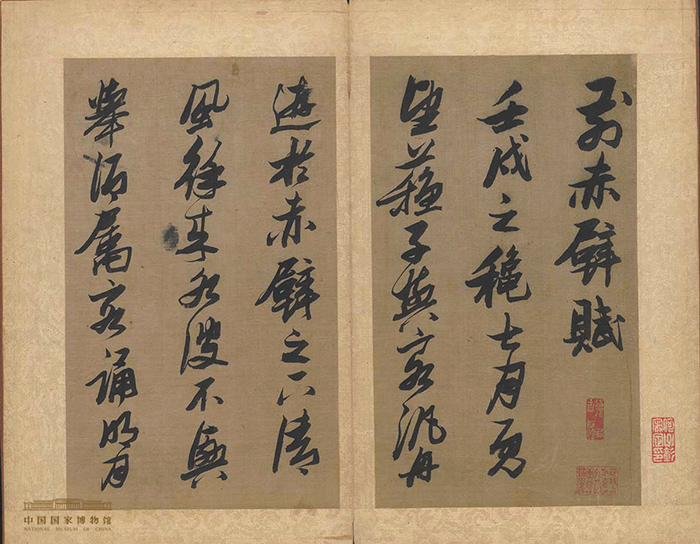 前赤壁賦
壬戌之穐七月既
望蘓子與客汎舟
遊於赤壁之下清
風徐来水波不興
舉酒属客誦明月
中国国家博物馆
NATIONAL MUSEUM OF CHINA